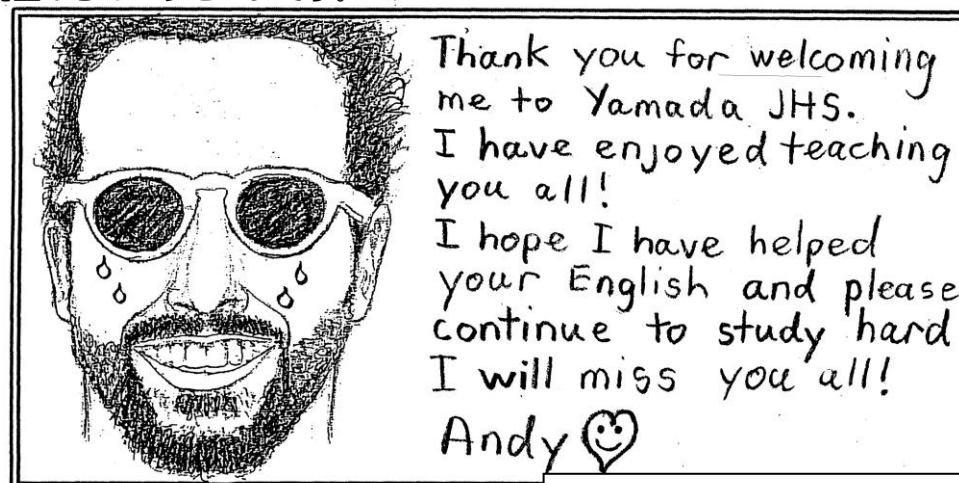 Thank you for welcoming
me to Yamada JHS.
I have enjoyed teaching
you all!
I hope I have helped
your English and please
continue to study hard
I will miss you all!
Andy